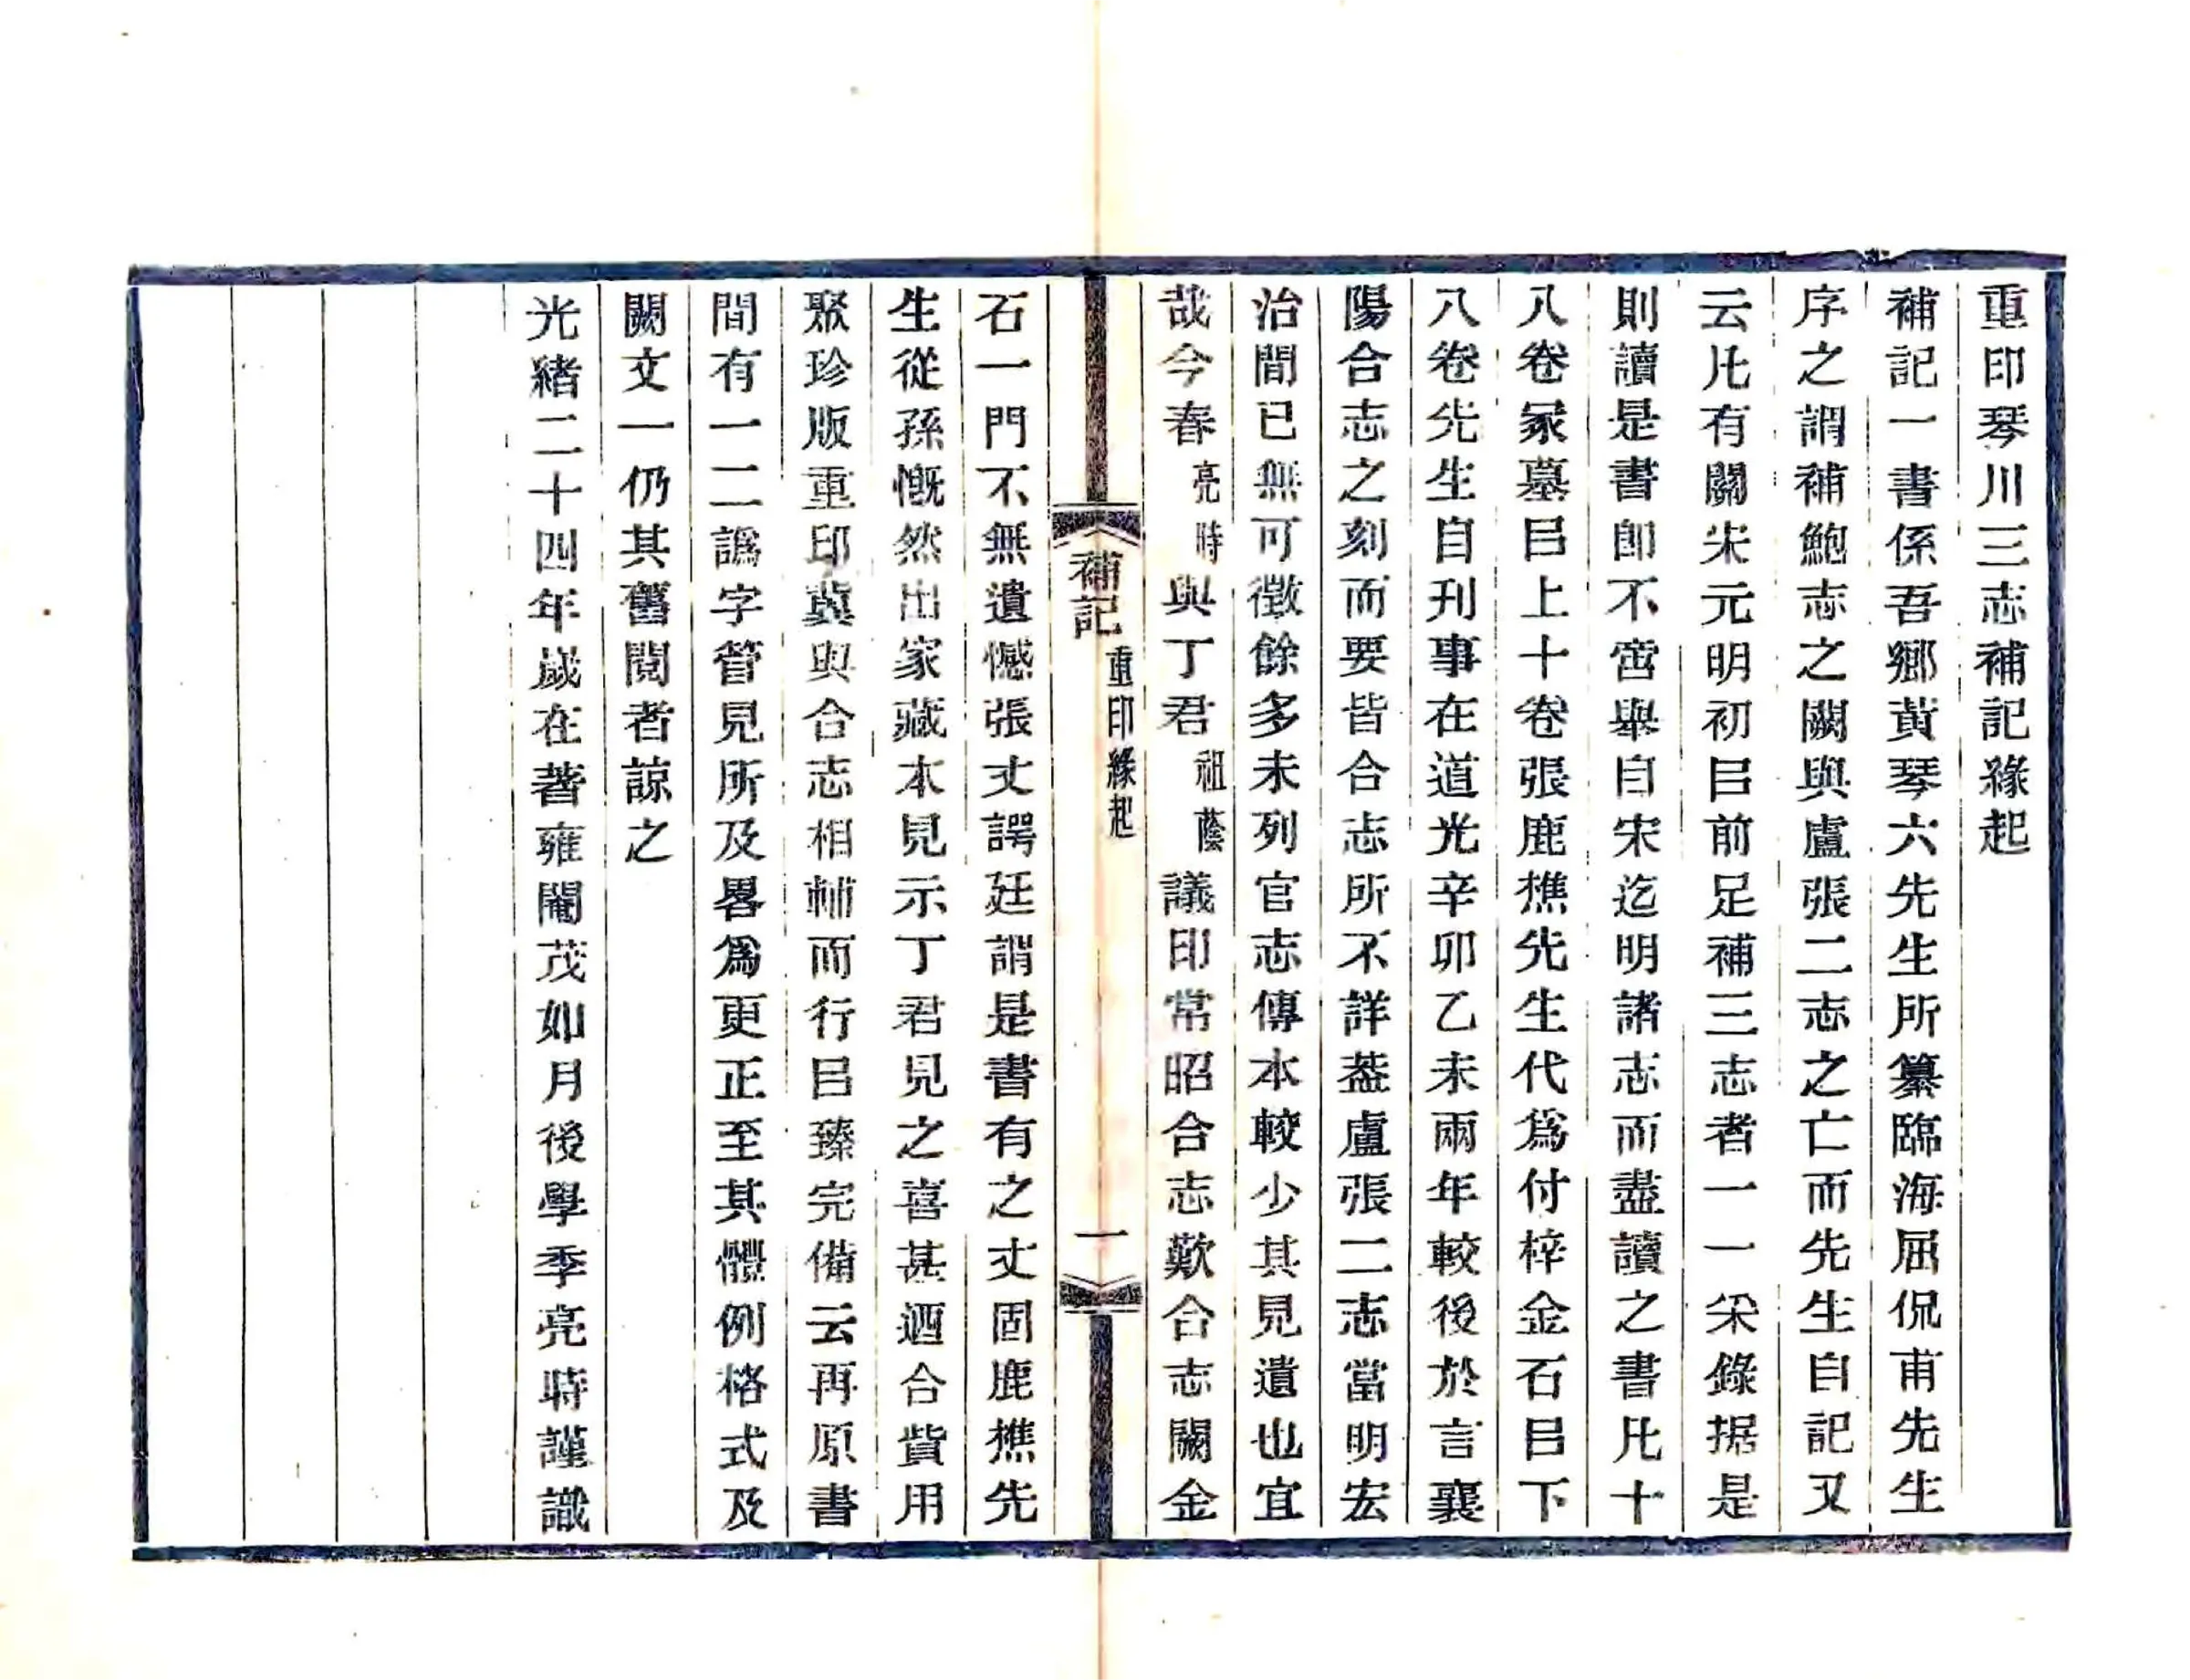 重印琴川三志補記緣起
補記一書係吾鄉黃琴六先生所纂臨海屈侃甫先生
序之謂補鮑志之闕與盧張二志之亡而先生自記又
云凡有關宋元明初㠯前足補三志者一一采錄据是
則讀是書卽不啻舉自宋迄明諸志而盡讀之書凡十
八卷冢墓㠯上十卷張鹿樵先生代爲付梓金石㠯下
八卷先生自刊事在道光辛卯乙未兩年較後於言襄
陽合志之刻而要皆合志所不詳葢盧張二志當明宏
治間已無可徵餘多未列官志傳本較少其見遺也宜
哉今春亮時與丁君祖蔭議印常昭合志歎合志闕金
補記 重印緣起 一
石一門不無遺憾張丈諤廷謂是書有之丈固鹿樵先
生從孫慨然出家藏本見示丁君見之喜甚迺合貲用
聚珍版重印冀與合志相輔而行㠯臻完備云再原書
間有一二譌字管見所及畧爲更正至其體例格式及
闕文一仍其舊閱者諒之
光緒二十四年歲在著雍閹茂如月後學季亮時謹識